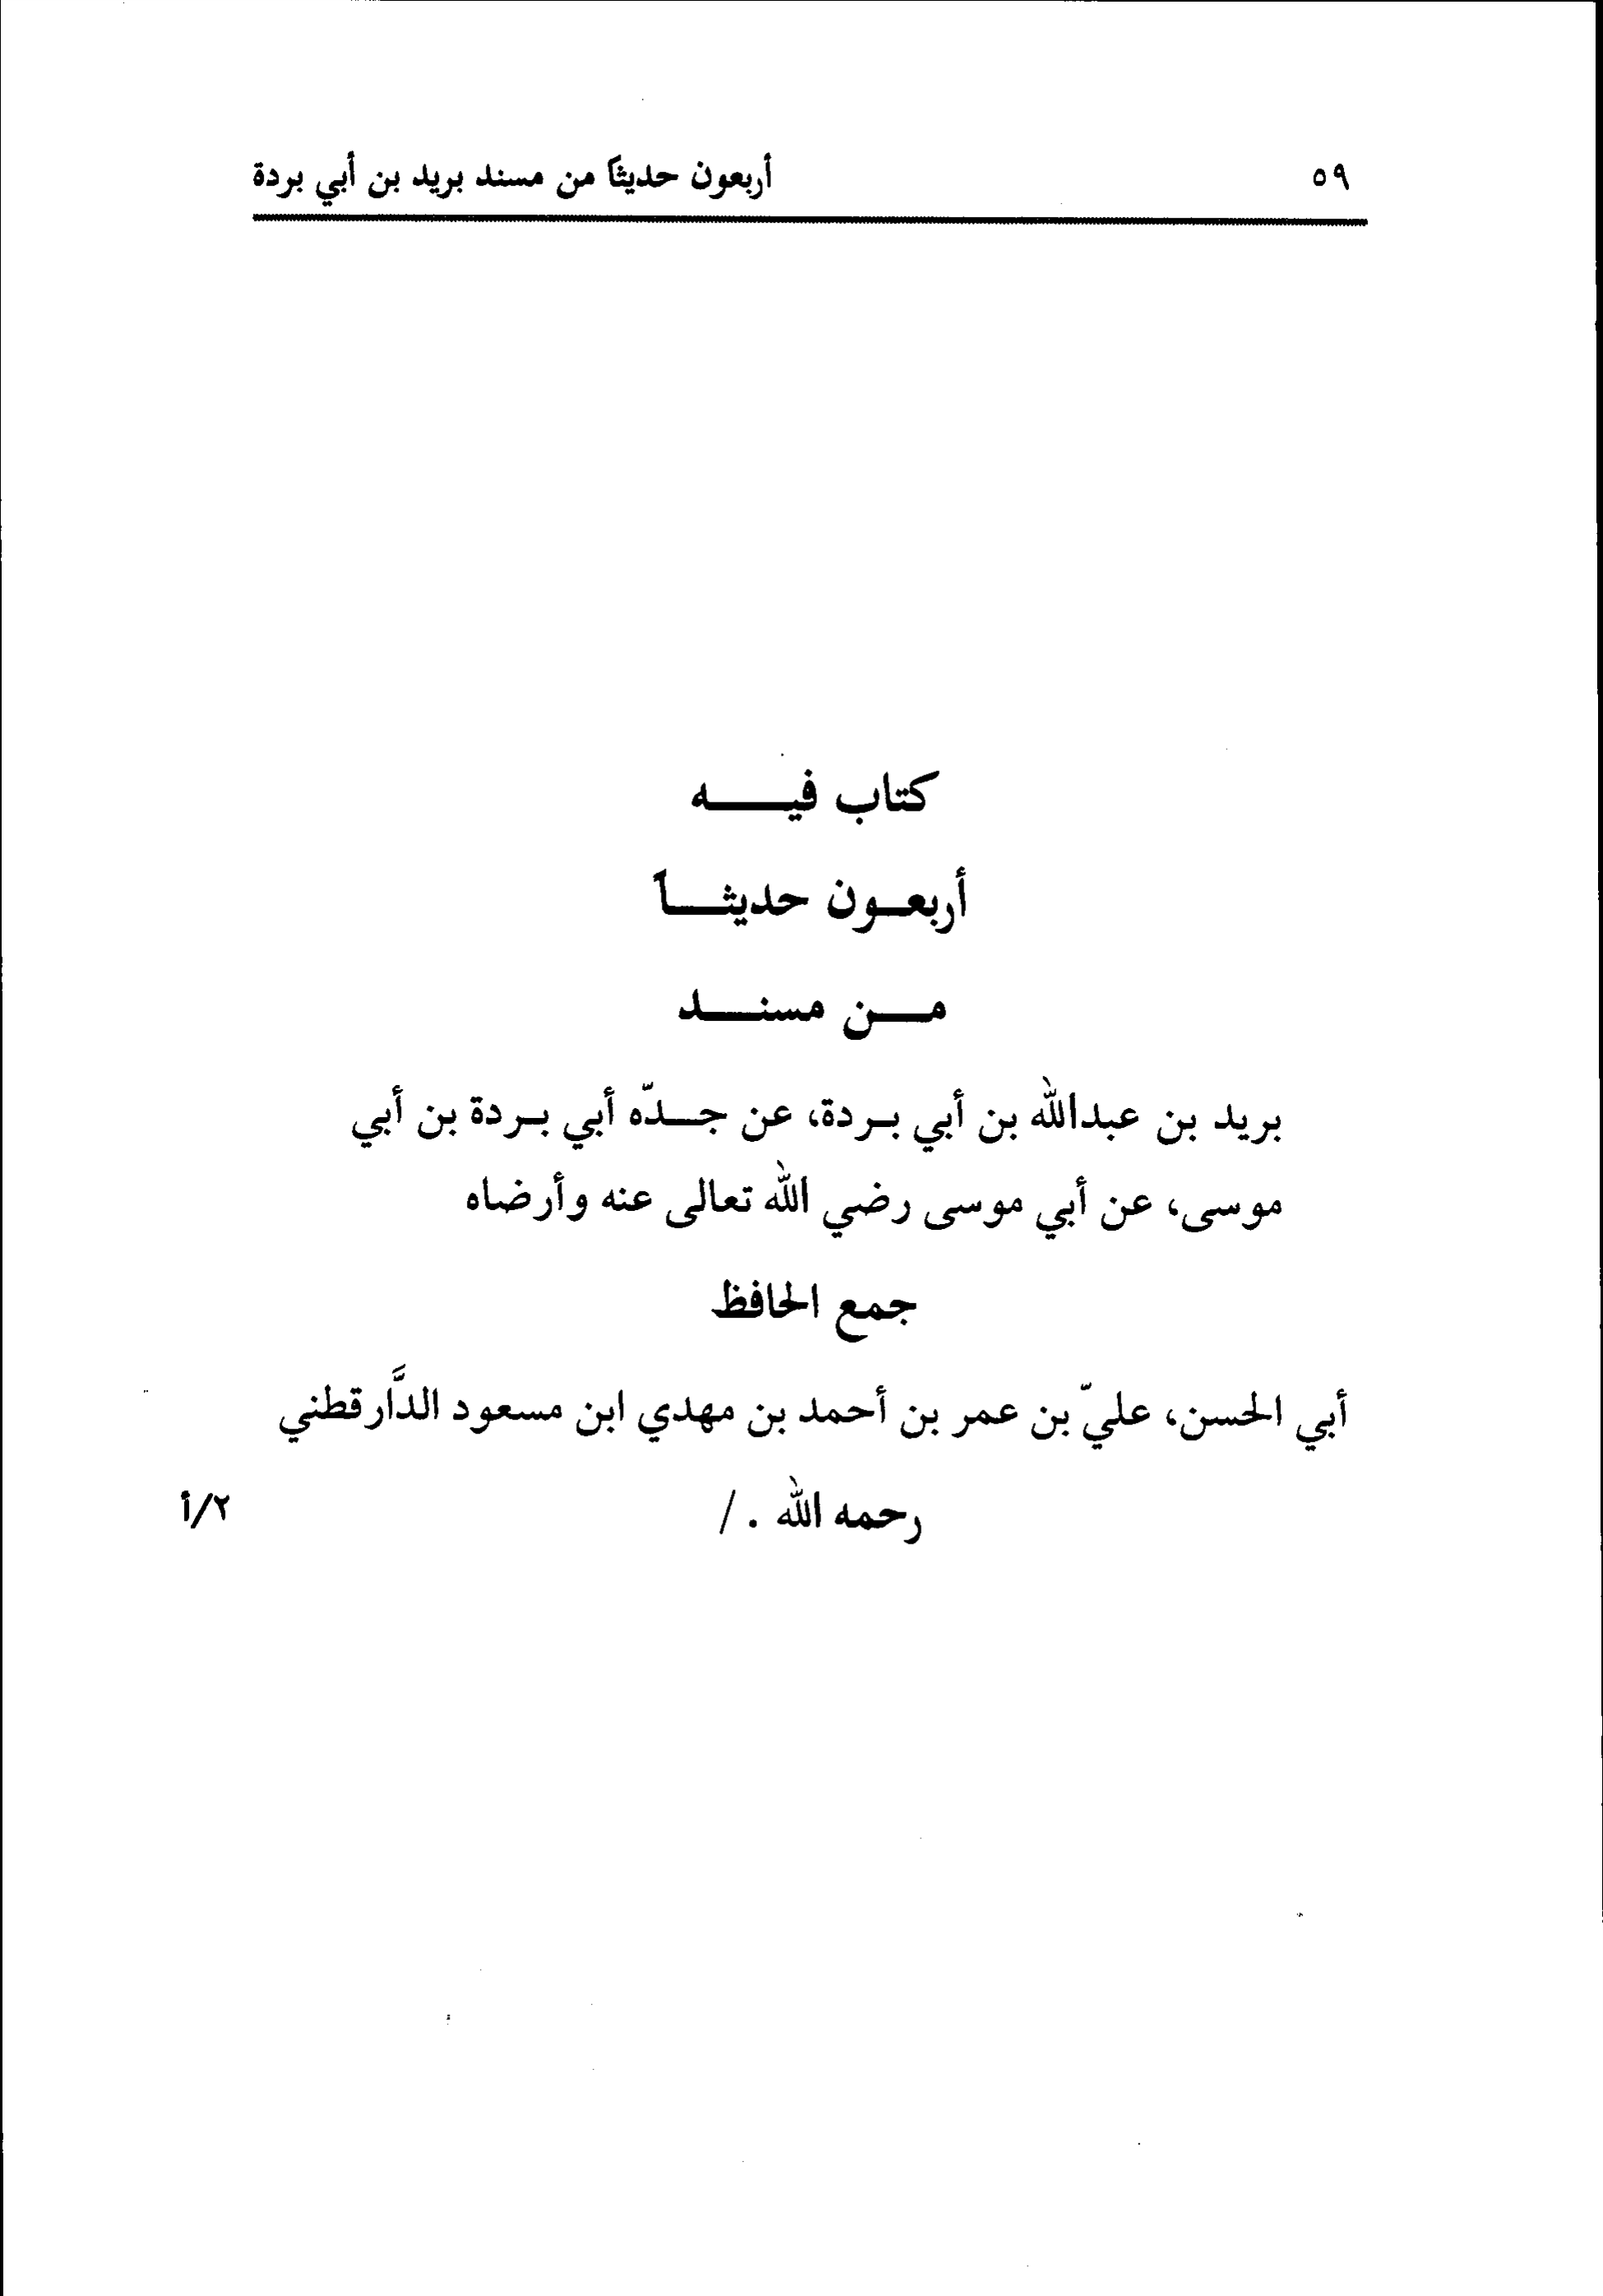 ٥٩ أربعون حديثاً من مسند بريد بن أبي بردة
كتاب فيـــــه
أربعــون حديثــــاً
مـــن مسنـــــد
بريد بن عبدالله بن أبي بـردة، عن جـــدّه أبي بـردة بن أبي
موسى، عن أبي موسى رضي الله تعالى عنه وأرضاه
جمع الحافظ
أبي الحسن، عليّ بن عمر بن أحمد بن مهدي ابن مسعود الدَّارقطني
رحمه الله . / ٢/أ